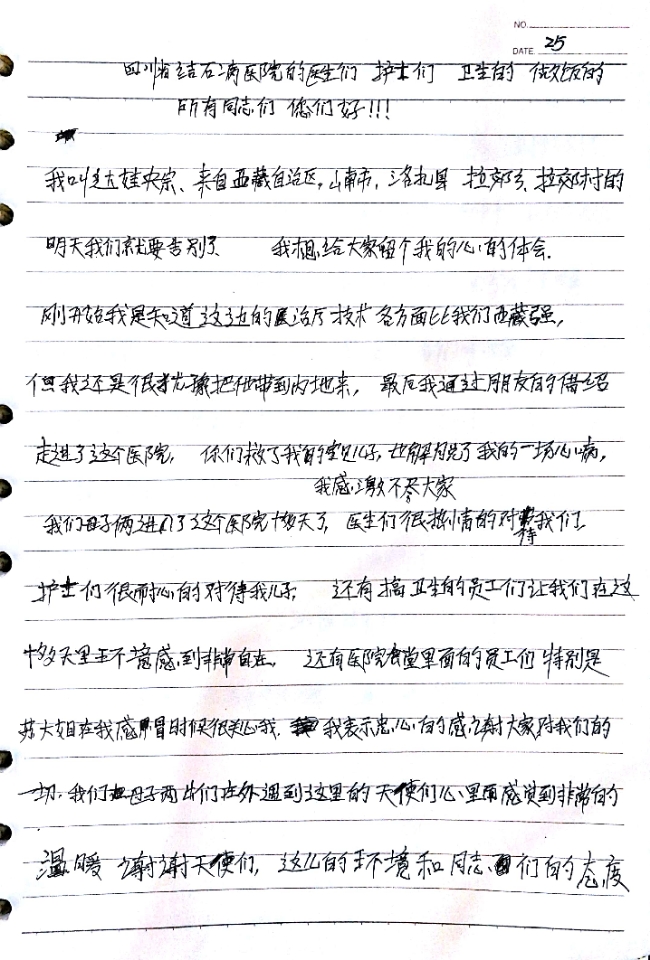 NO.
DATE. 25
四川省结石病医院的医生们 护士们 卫生的 做饭的
所有同志们 您们好!!!
我叫达娃央宗、来自西藏自治区,山南市,洛扎县 拉郊乡、拉郊村的
明天我们就要告别了 我想给大家留个我的心的体会.
刚开始我是知道这边的医治疗技术各方面比我们西藏强,
但我还是很犹豫把他带到内地来, 最后我通过朋友的借绍
走进了这个医院, 你们救了我的宝贝儿子,也解脱了我的一场心病,
我感激不尽大家
我们母子俩进入了这个医院十多天了, 医生们很热情的对待我们.
护士们很耐心的对待我儿子 还有搞卫生的员工们让我们在这
十多天里环境感到非常自在. 还有医院食堂里面的员工们 特别是
苏大姐在我感冒时候很关心我. 我表示忠心的感谢大家对我们的
一切. 我们母子两 出们在外遇到这里的天使们心里面感觉到非常的
温暖 谢谢天使们, 这儿的环境和同志们的态度